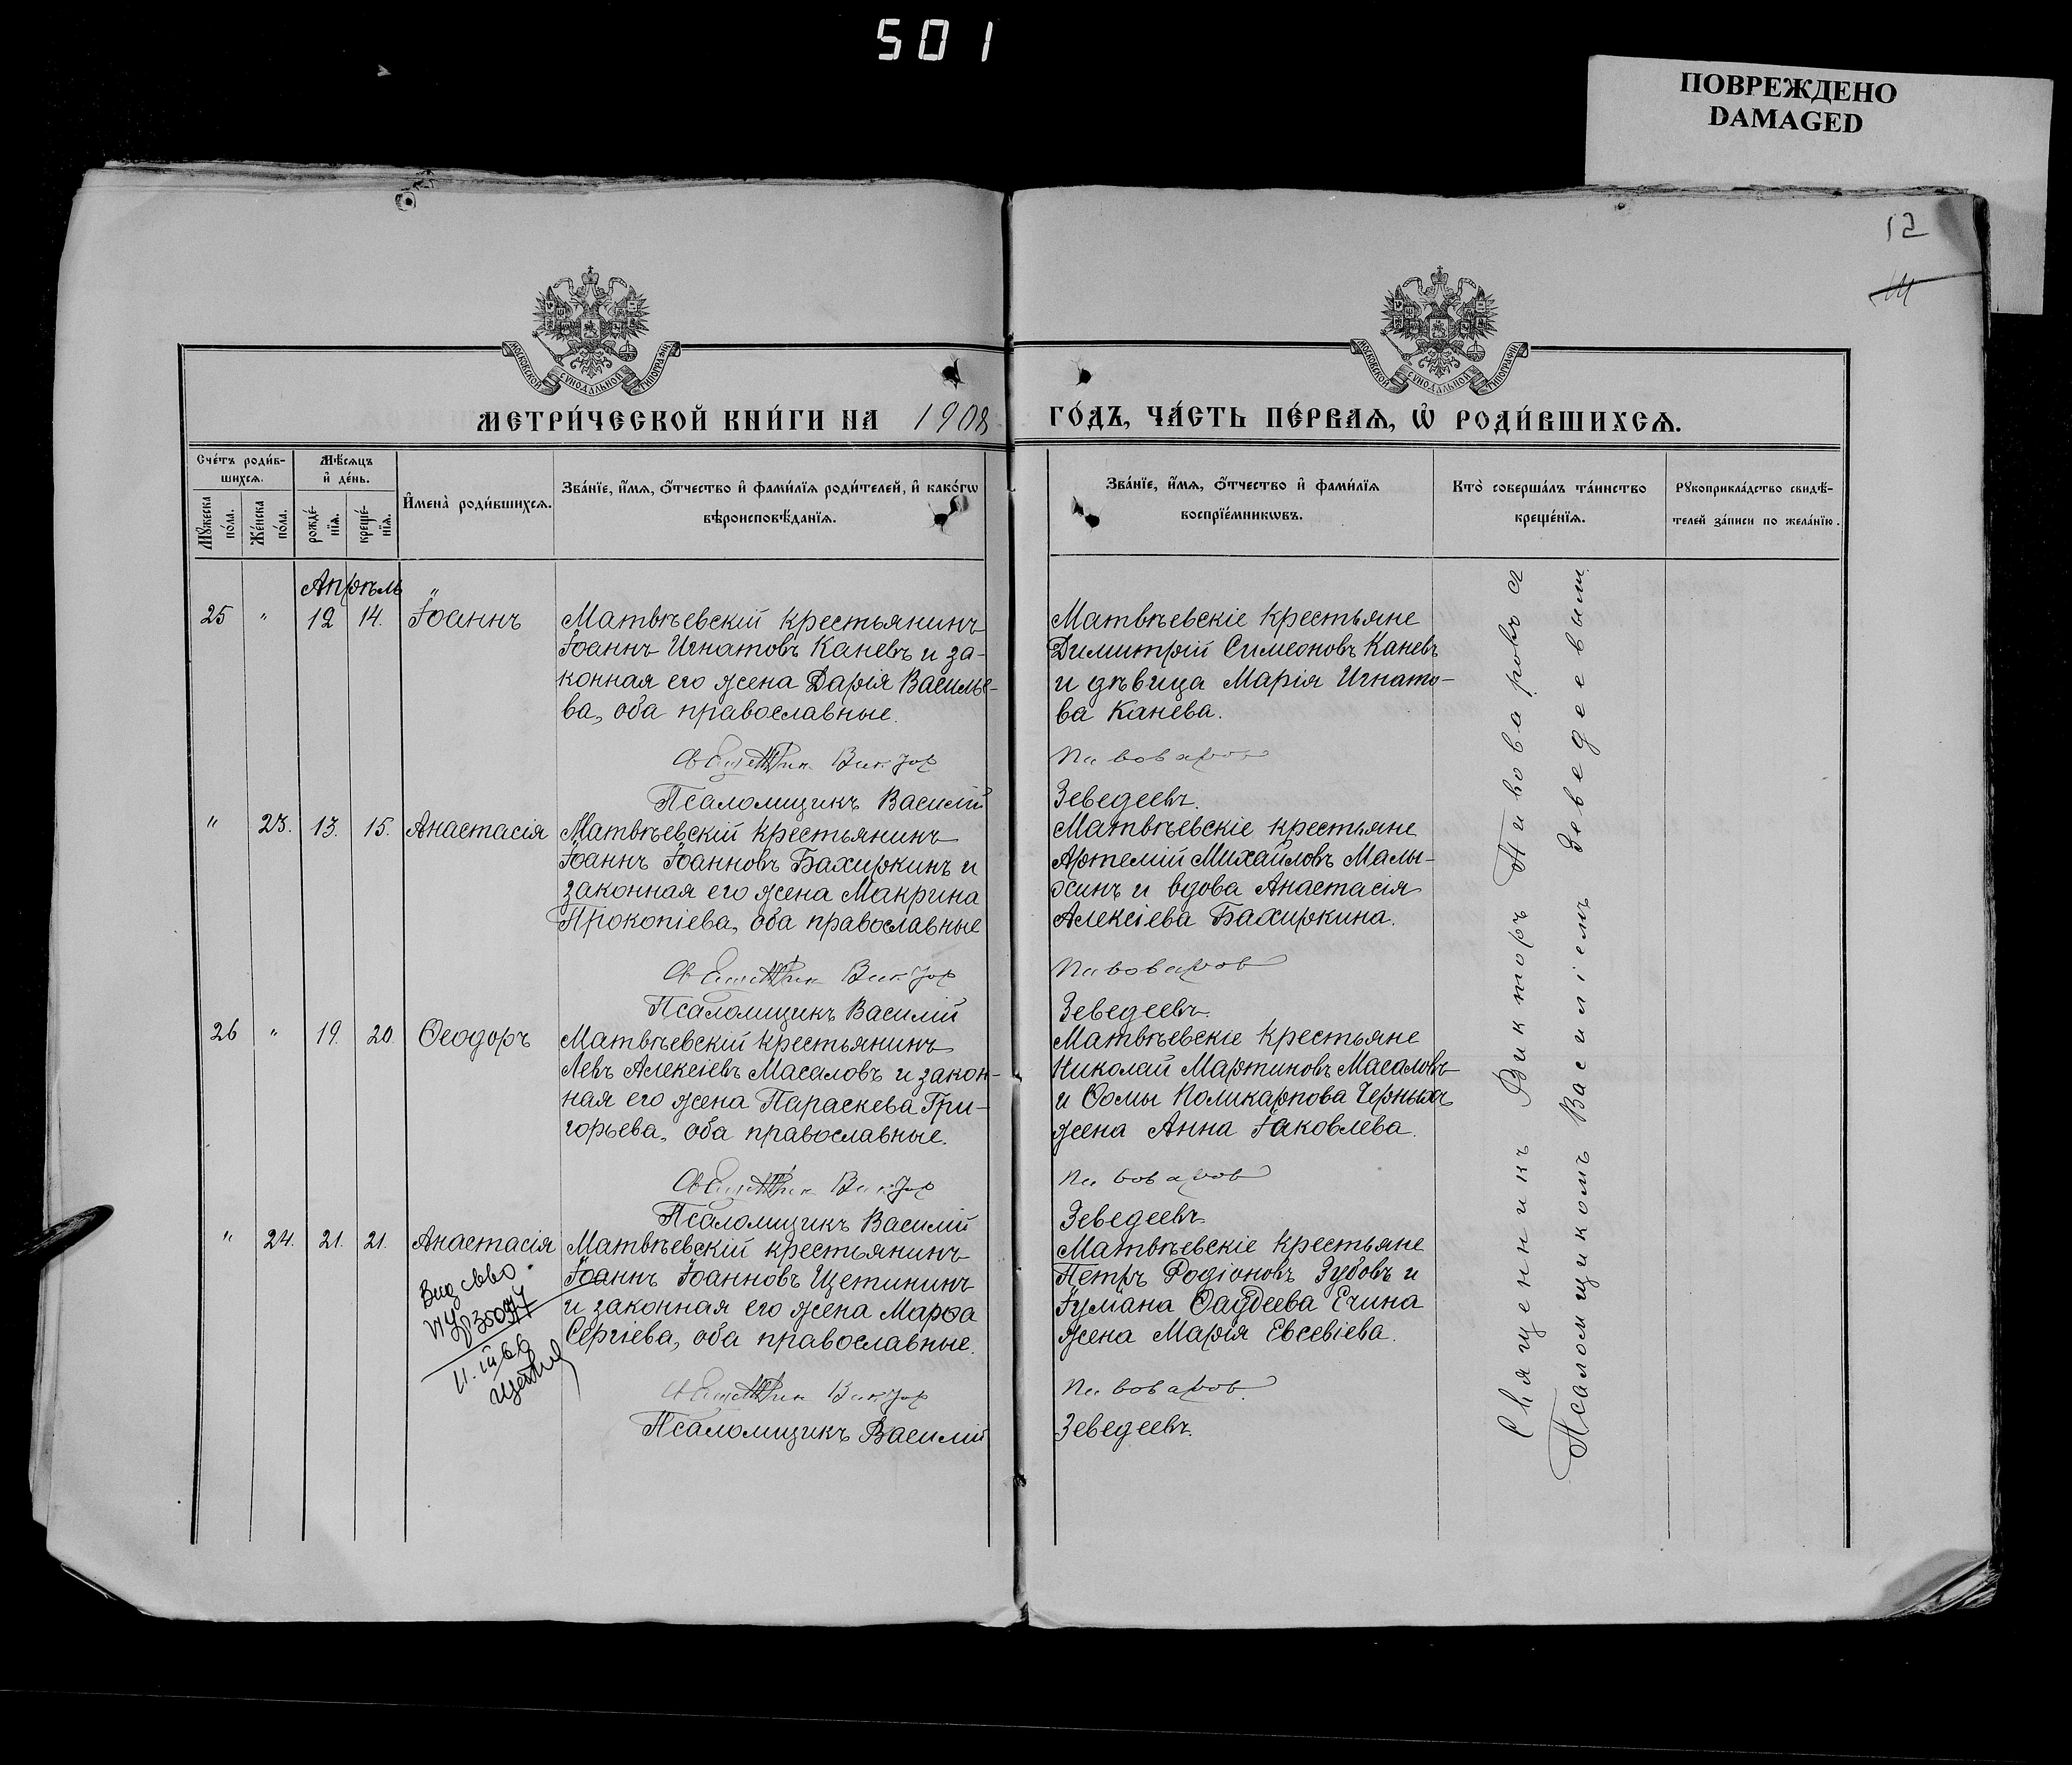 501
ПОВРЕЖДЕНО
DAMAGED
12
МОСКОВСКОЙ СУНОДАЛЬНОЙ ТИПОГРАФІИ
МОСКОВСКОЙ СУНОДАЛЬНОЙ ТИПОГРАФІИ
МЕТРИ́ЧЕСКОЙ КНИ́ГИ НА 1908
ГО́ДЪ, ЧА́СТЬ ПЕ́РВАѦ, Ѡ҆ РОДИ́ВШИХСѦ.
Сче́тъ роди́в-
шихсѧ.
Мѣ́сѧцъ
и҆ де́нь.
Мꙋ́жеска
по́ла.
Же́нска
по́ла.
рожде́-
нїѧ.
креще́-
нїѧ.
И҆мена̀ роди́вшихсѧ.
Зва́нїе, и҆́мѧ, ѻ҆́тчество и҆ фами́лїѧ роди́телей, и҆ како́гѡ
вѣроисповѣ́данїѧ.
Зва́нїе, и҆́мѧ, ѻ҆́тчество и҆ фами́лїѧ
воспрїе́мникѡвъ.
Кто̀ соверша́лъ та́инство
креще́нїѧ.
Рꙋкоприкла́дство свидѣ́-
телей за́писи по жела́нїю.
Апрѣль
25 " 12 14. Іоаннъ
Матвѣевскій крестьянинъ
Іоаннъ Игнатовъ Каневъ и за-
конная его жена Дарія Василье-
ва, оба православные.
Священник Виктор
Псаломщикъ Василій
Матвѣевскіе крестьяне
Димитрій Симеоновъ Каневъ
и дѣвица Марія Игнато-
ва Канева.
Пивоваров
Зеведеевъ.
" 23. 13. 15. Анастасія
Матвѣевскій крестьянинъ
Іоаннъ Іоанновъ Бахиркинъ и
законная его жена Макрина
Прокопіева, оба православные
Священник Виктор
Псаломщикъ Василій
Матвѣевскіе крестьяне
Артемій Михайловъ Малы-
хинъ и вдова Анастасія
Алексіева Бахиркина.
Пивоваров
Зеведеевъ.
26 " 19. 20. Ѳеодоръ
Матвѣевскій крестьянинъ
Левъ Алексіевъ Масаловъ и закон-
ная его жена Параскева Гри-
горьева, оба православные.
Священник Виктор
Псаломщикъ Василій
Матвѣевскіе крестьяне
Николай Мартиновъ Масаловъ
и Ѳомы Поликарпова Черныхъ
жена Анна Іаковлева.
Пивоваров
Зеведеевъ
" 24. 21. 21. Анастасія
Матвѣевскій крестьянинъ
Іоаннъ Іоанновъ Щетининъ
и законная его жена Марѳа
Сергіева, оба православные.
Священник Виктор
Псаломщикъ Василій
Матвѣевскіе крестьяне
Петръ Родіоновъ Зубовъ и
Іуліана Ѳаддеева Ечина
жена Марія Евсевіева.
Пивоваров.
Зеведеевъ.
Священникъ Викторъ Пивоваровъ съ
Псаломщикомъ Василіемъ Зеведеевым